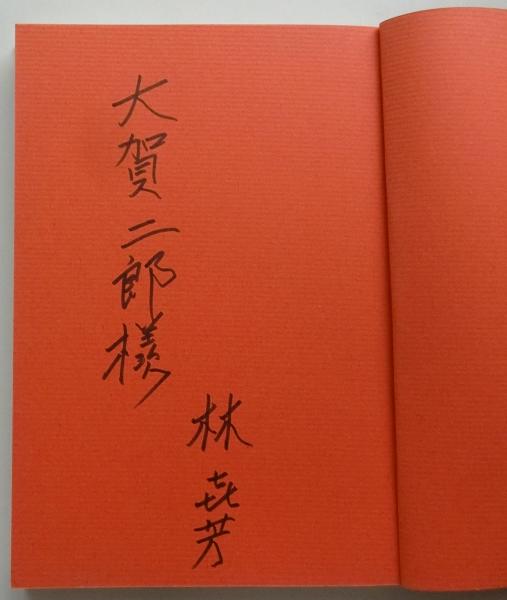 大賀二郎様
林㐂芳